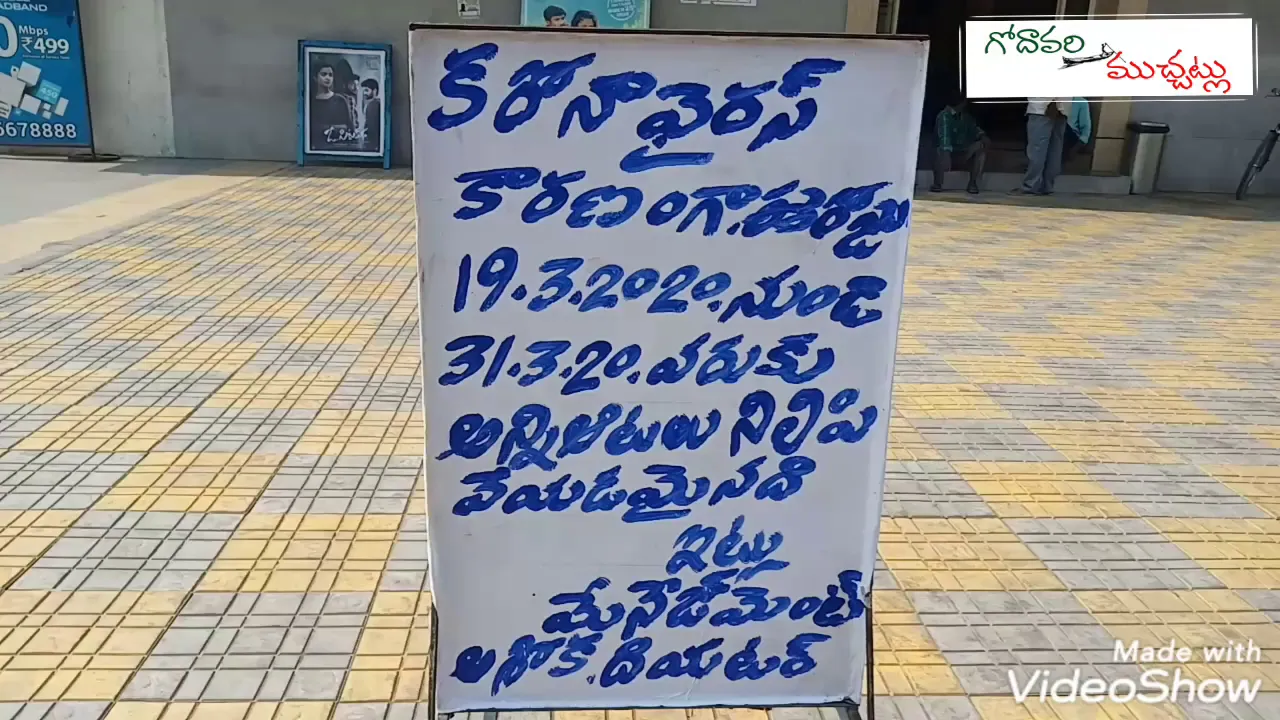 OADBAND
0 Mbps
₹499
6678888
గోదావరి
ముచ్చట్లు
కరోనా వైరస్
కారణంగా. ఈరోజు
19.3.2020. నుండి
31.3.20. వరుకు
అన్ని ఆటలు నిలిపి
వేయడమైనది
ఇట్లు
మేనేజ్‌మెంట్
అశోక్. దియటర్
Made with
VideoShow